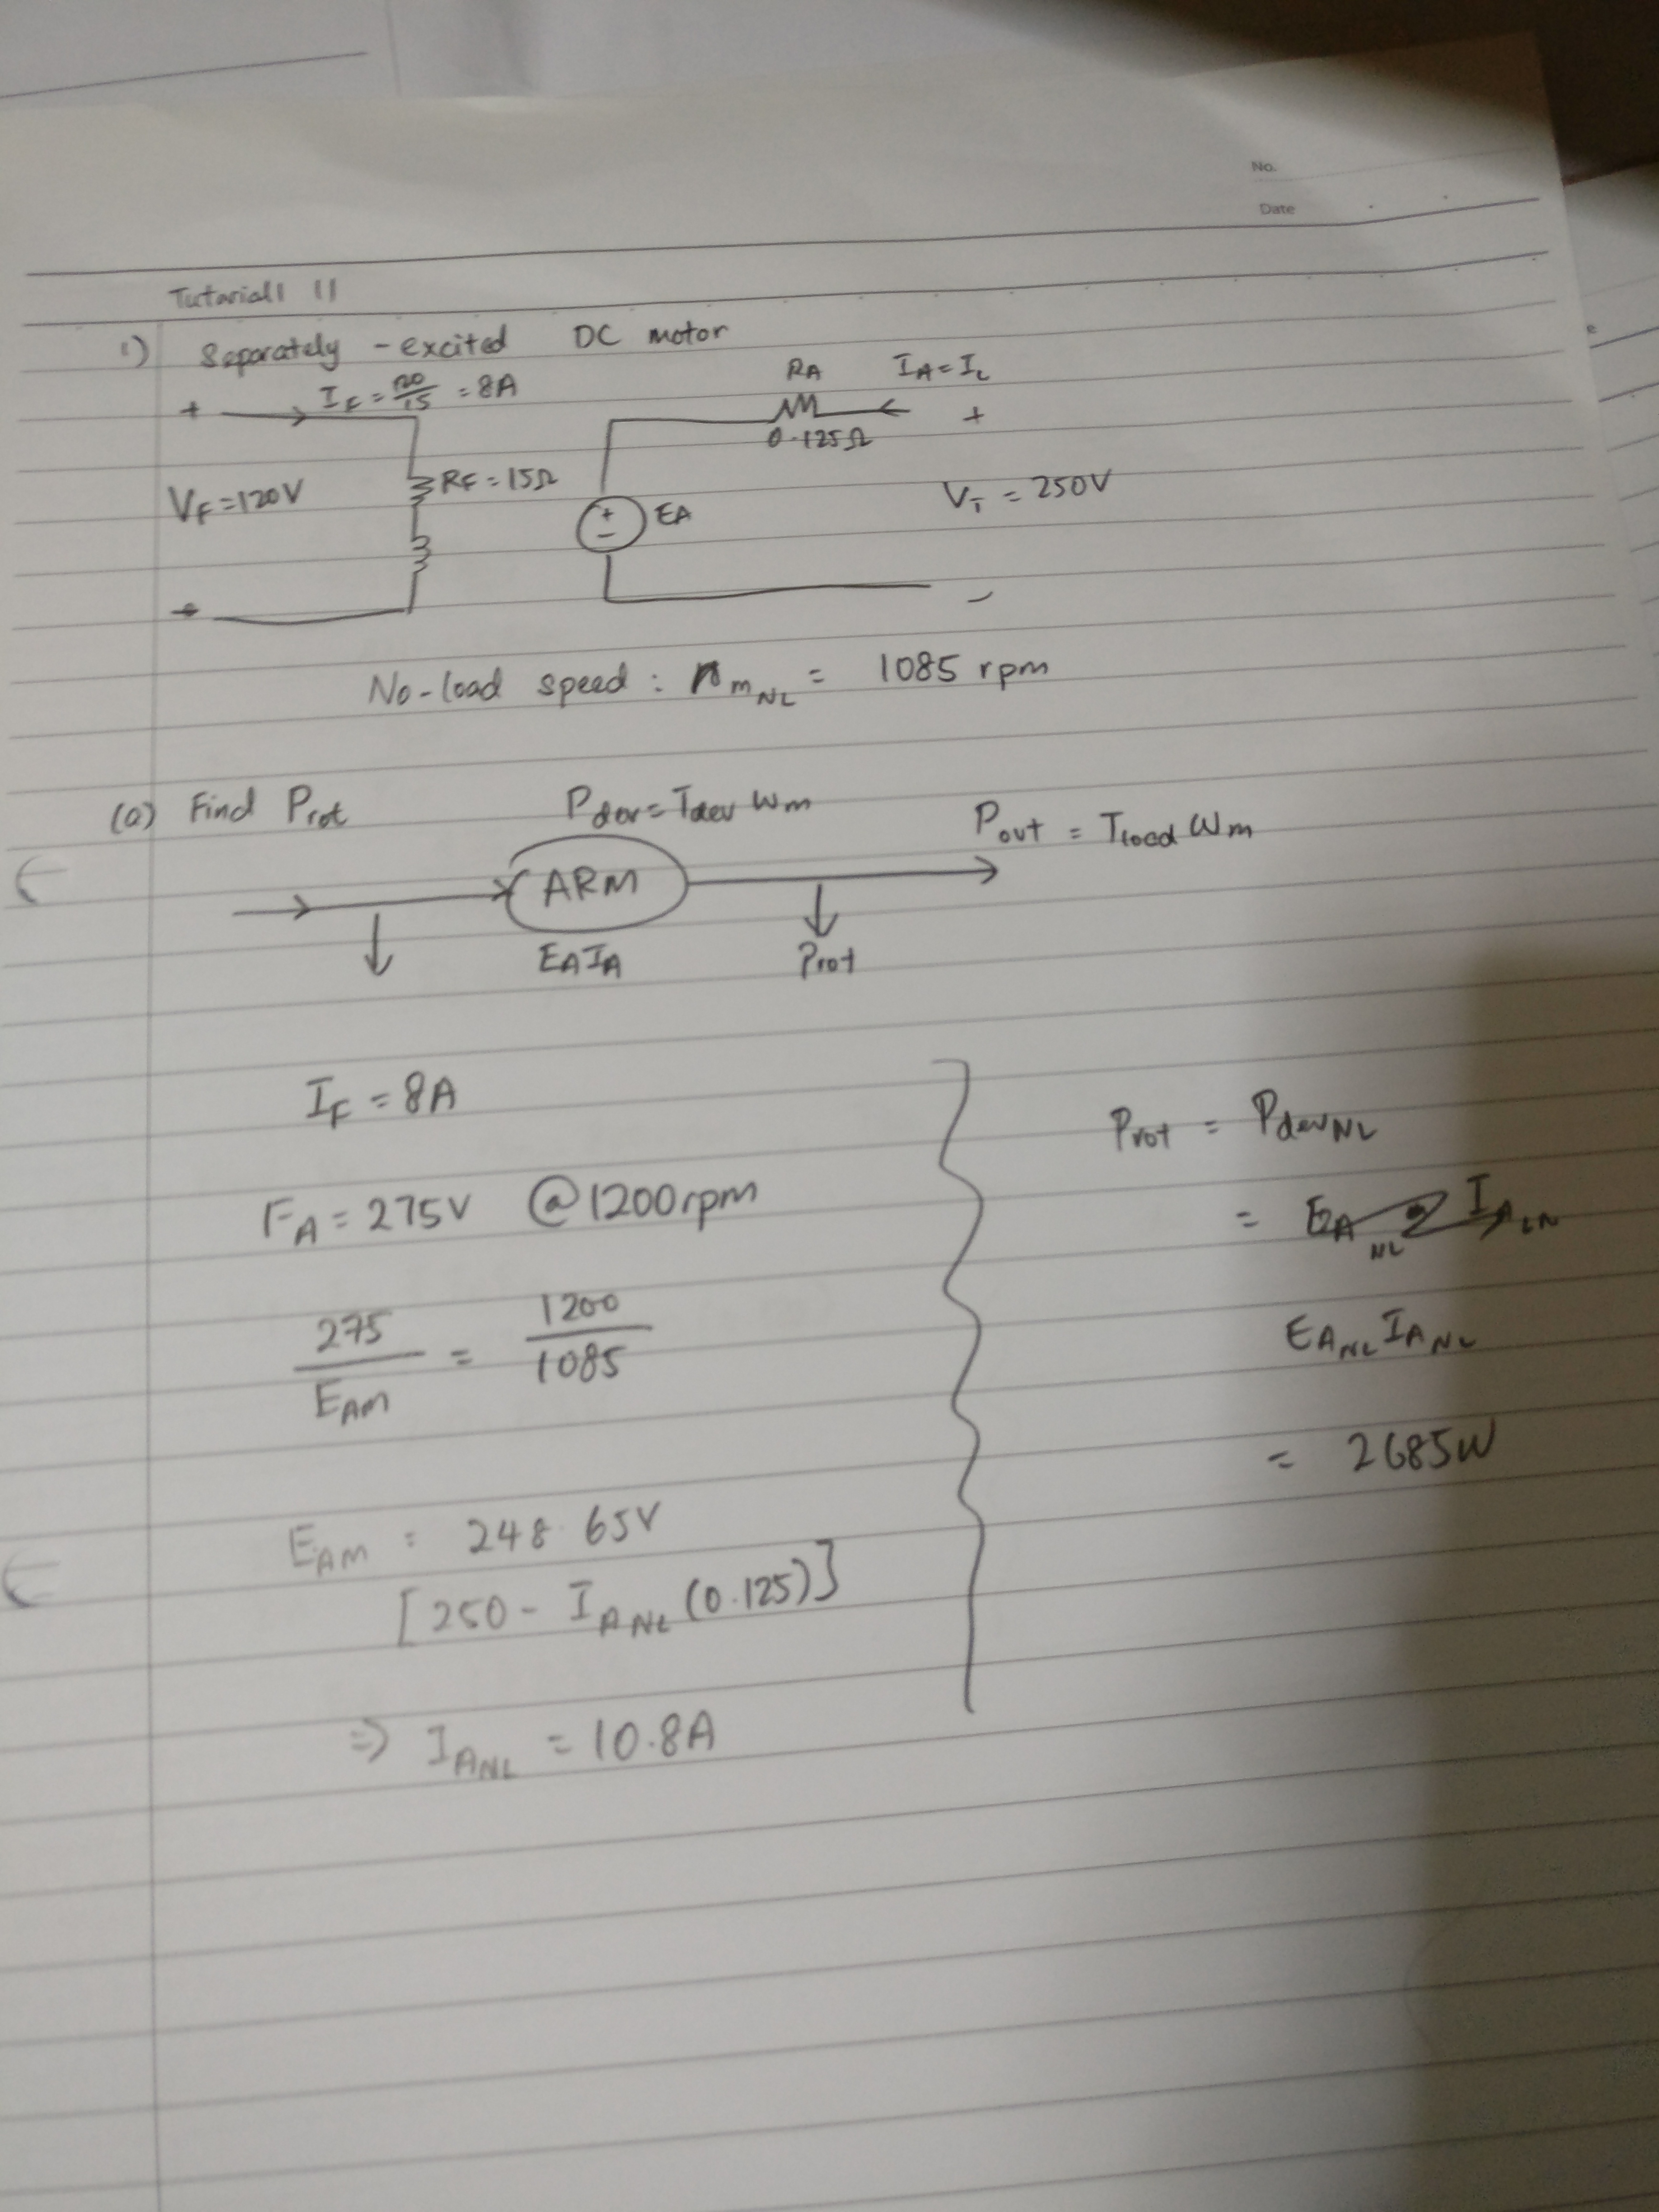 No.
Date
Tutorial 11
1) Separately - excited DC motor
I_F = 120/15 = 8A
R_A
I_A = I_L
+
+
0.125Ω
V_F = 120V
R_F = 15Ω
+
-
E_A
V_T = 250V
-
No-load speed : n_m_NL = 1085 rpm
(a) Find P_rot
P_dev = T_dev ω_m
P_out = T_load ω_m
ARM
E_A I_A
P_rot
I_F = 8A
E_A = 275V @1200rpm
275/E_AM = 1200/1085
E_AM = 248.65V
[250 - I_A_NL (0.125)]
⇒ I_A_NL = 10.8A
P_rot = P_dev_NL
=
E_A_NL I_A_NL
= 2685W